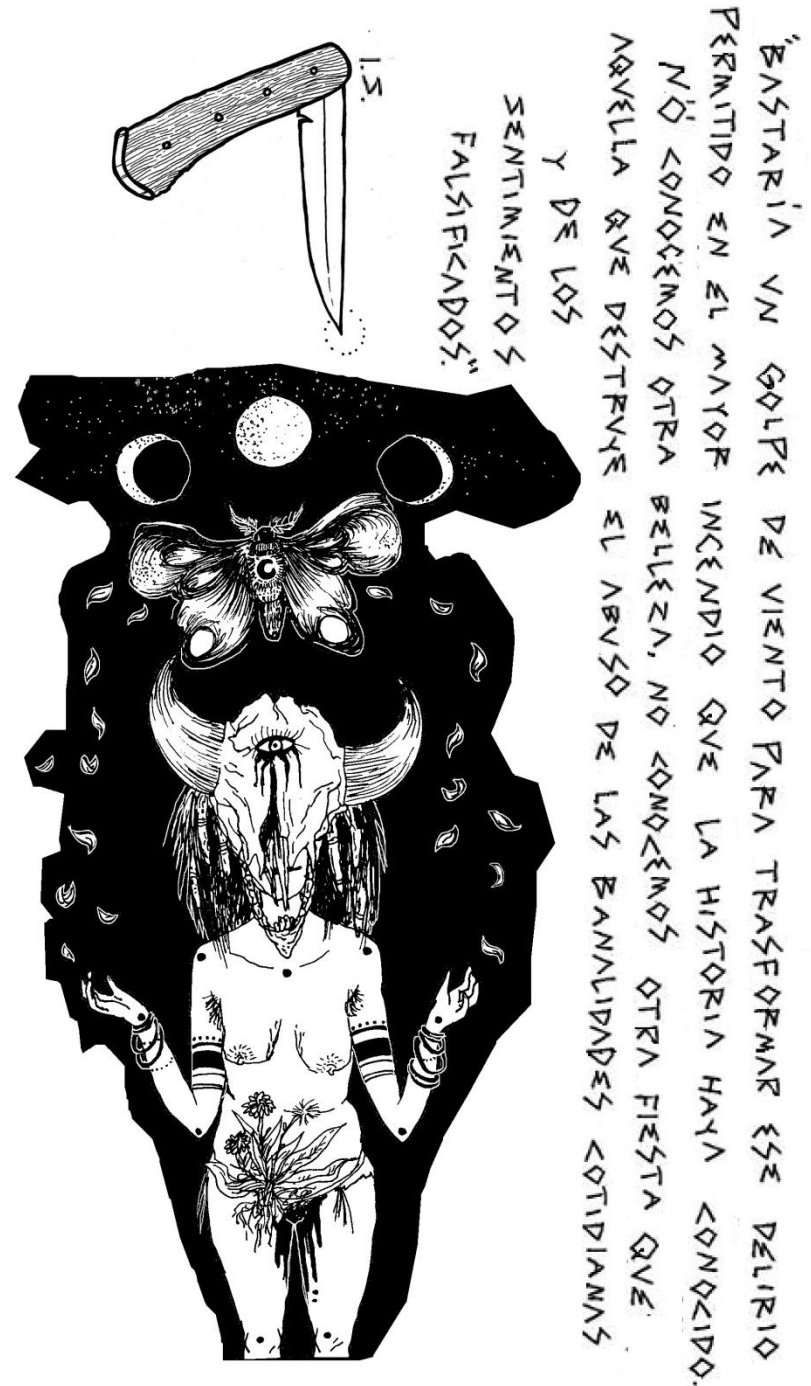 "BASTARÍA UN GOLPE DE VIENTO PARA TRASFORMAR ESE DELIRIO
PERMITIDO EN EL MAYOR INCENDIO QUE LA HISTORIA HAYA CONOCIDO.
NÖ CONOCEMOS OTRA BELLEZA, NO CONOCEMOS OTRA FIESTA QUE
AQUELLA QUE DESTRUYE EL ABUSO DE LAS BANALIDADES COTIDIANAS
Y DE LOS
SENTIMIENTOS
FALSIFICADOS."
I.S.